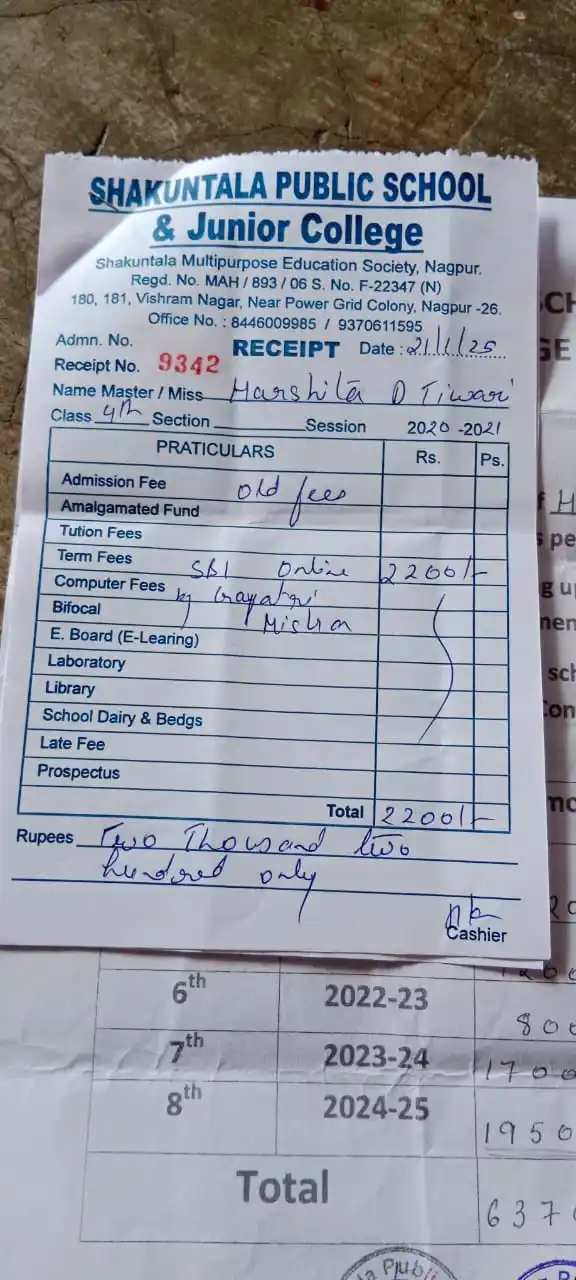 SHAKUNTALA PUBLIC SCHOOL
& Junior College
Shakuntala Multipurpose Education Society, Nagpur.
Regd. No. MAH / 893 / 06 S. No. F-22347 (N)
180, 181, Vishram Nagar, Near Power Grid Colony, Nagpur -26.
Office No. : 8446009985 / 9370611595
Admn. No. RECEIPT Date : 21/1/25
Receipt No. 9342
Name Master / Miss Harshita D Tiwari
Class 4th Section Session 2020-2021
PRATICULARS Rs. Ps.
Admission Fee old fees
Amalgamated Fund
Tution Fees
Term Fees SBI Online 2200/-
Computer Fees by Gayatri
Bifocal Mishra
E. Board (E-Learing)
Laboratory
Library
School Dairy & Bedgs
Late Fee
Prospectus
Total 2200/-
Rupees Two Thousand two
hundred only
Cashier
6th 2022-23 800
7th 2023-24 1700
8th 2024-25 1950
Total 637